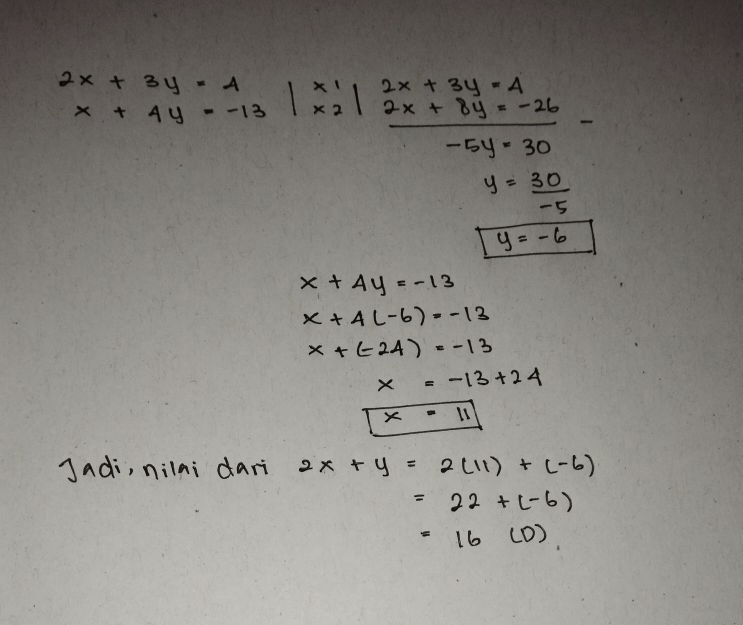 2x + 3y = 4 | x1 | 2x + 3y = 4
x + 4y = -13 | x2 | 2x + 8y = -26 -
-5y = 30
y = 30
-5
y = -6
x + 4y = -13
x + 4(-6) = -13
x + (-24) = -13
x = -13 + 24
x = 11
Jadi, nilai dari 2x + y = 2(11) + (-6)
= 22 + (-6)
= 16 (D).